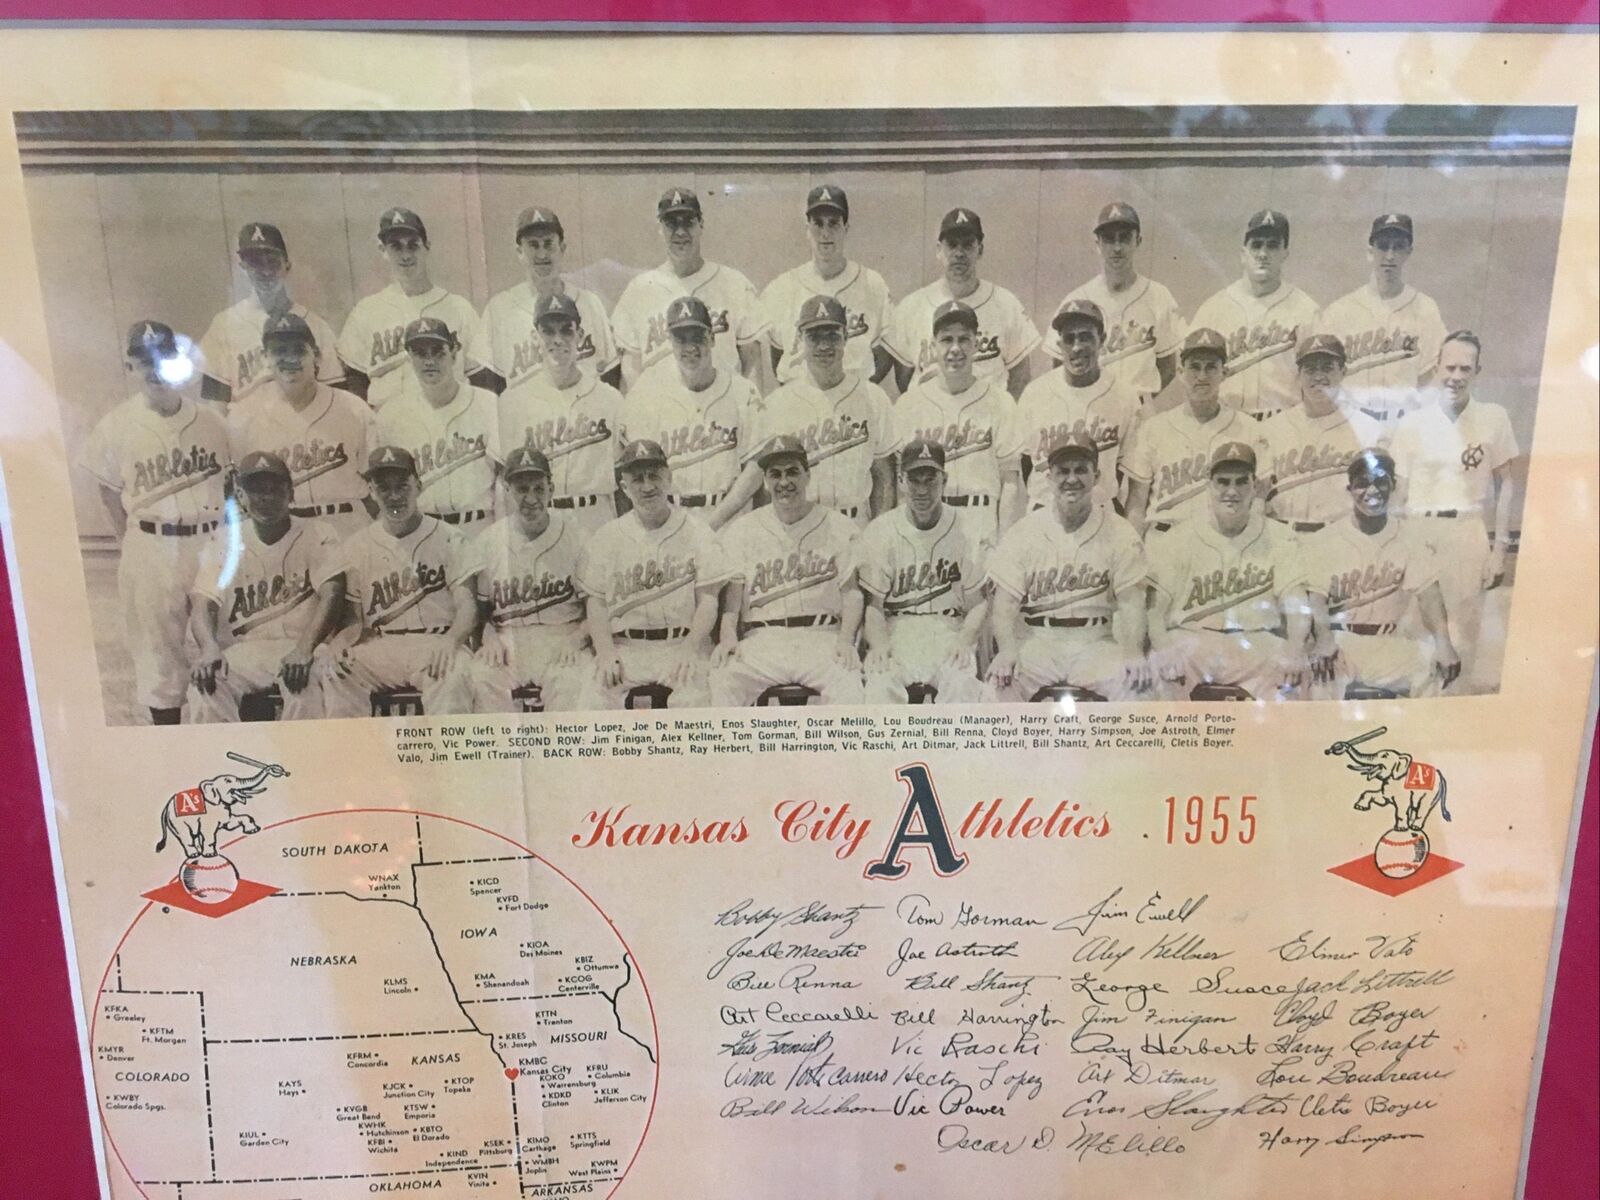 FRONT ROW (left to right): Hector Lopez, Joe De Maestri, Enos Slaughter, Oscar Melillo, Lou Boudreau (Manager), Harry Craft, George Susce, Arnold Porto-
carrero, Vic Power. SECOND ROW: Jim Finigan, Alex Kellner, Tom Gorman, Bill Wilson, Gus Zernial, Bill Renna, Cloyd Boyer, Harry Simpson, Joe Astroth, Elmer
Valo, Jim Ewell (Trainer). BACK ROW: Bobby Shantz, Ray Herbert, Bill Harrington, Vic Raschi, Art Ditmar, Jack Littrell, Bill Shantz, Art Ceccarelli, Cletis Boyer.
A's
A's
Kansas City Athletics . 1955
Bobby Shantz Tom Gorman Jim Ewell
Joe De Maestri Joe Astroth Alex Kellner Elmer Valo
Bill Renna Bill Shantz George Susce Jack Littrell
Art Ceccarelli Bill Harrington Jim Finigan Cloyd Boyer
Gus Zernial Vic Raschi Ray Herbert Harry Craft
Arnie Portocarrero Hector Lopez Art Ditmar Lou Boudreau
Bill Wilson Vic Power Enos Slaughter Clete Boyer
Oscar D. Melillo Harry Simpson
SOUTH DAKOTA
WNAX
Yankton
KICD
Spencer
KVFD
Fort Dodge
IOWA
KIOA
Des Moines
KBIZ
Ottumwa
NEBRASKA
KLMS
Lincoln
KMA
Shenandoah
KCOG
Centerville
KFKA
Greeley
KFTM
Ft. Morgan
KMYR
Denver
COLORADO
KWBY
Colorado Spgs.
KTTN
Trenton
KRES
St. Joseph
MISSOURI
KFRM
Concordia
KANSAS
KMBC
Kansas City
KOKO
Warrensburg
KFRU
Columbia
KDKD
Clinton
KLIK
Jefferson City
KAYS
Hays
KJCK
Junction City
KTOP
Topeka
KVGB
Great Bend
KTSW
Emporia
KWHK
Hutchinson
KBTO
El Dorado
KIUL
Garden City
KFBI
Wichita
KSEK
Pittsburg
KIMO
Carthage
KTTS
Springfield
KIND
Independence
WMBH
Joplin
KWPM
West Plains
OKLAHOMA
KVIN
Vinita
ARKANSAS
Athletics
Athletics
Athletics
Athletics
Athletics
Athletics
Athletics
Athletics
Athletics
KC